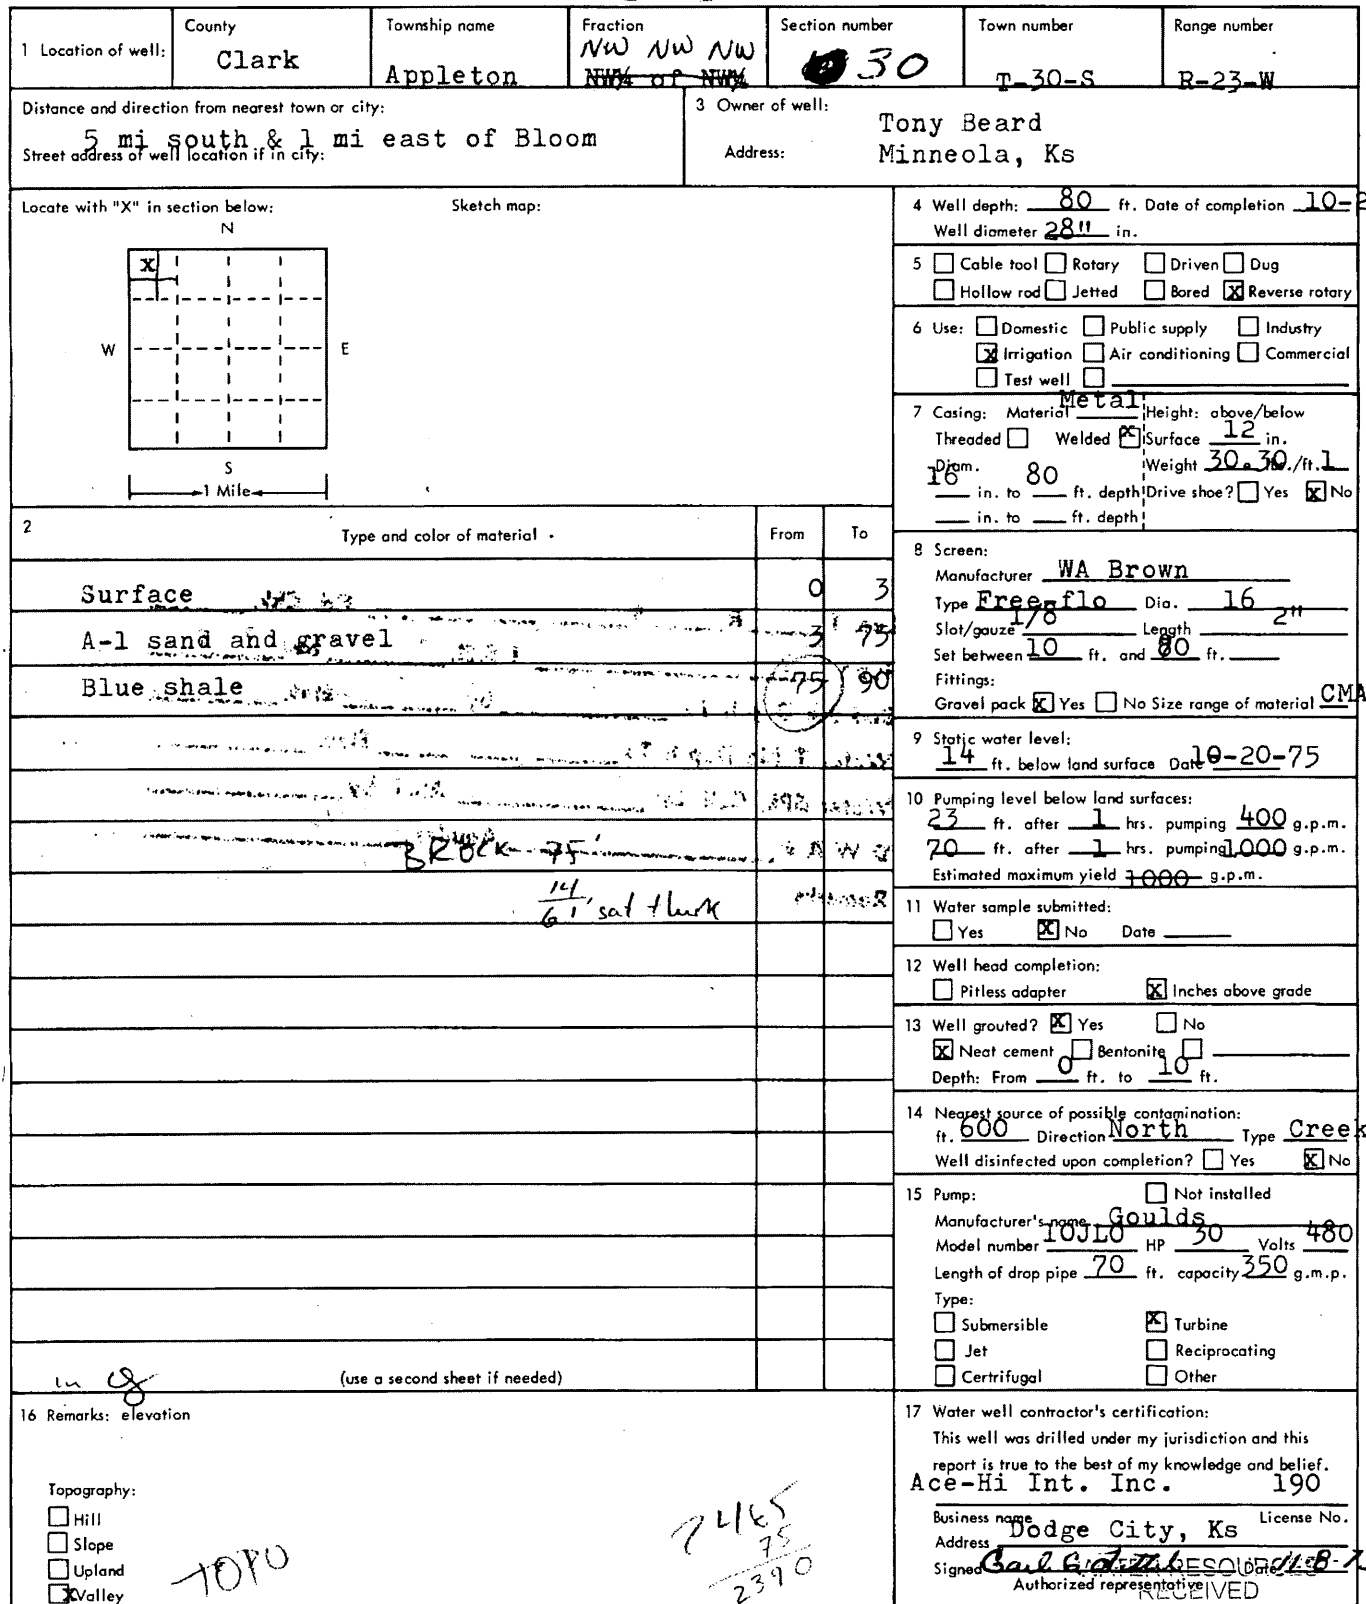 1 Location of well:
County
Clark
Township name
Appleton
Fraction
NW NW NW
NW¼ of NW¼
Section number
30
Town number
T-30-S
Range number
R-23-W
Distance and direction from nearest town or city:
5 mi south & 1 mi east of Bloom
Street address of well location if in city:
3 Owner of well:
Tony Beard
Address:
Minneola, Ks
Locate with "X" in section below:
Sketch map:
N
X
W
E
S
1 Mile
2
Type and color of material
From
To
Surface 0 3
A-1 sand and gravel 3 75
Blue shale 75 90
BROCK 75'
14
61' sat thick
in
(use a second sheet if needed)
4 Well depth: 80 ft. Date of completion 10-2
Well diameter 28" in.
5 Cable tool Rotary Driven Dug
Hollow rod Jetted Bored X Reverse rotary
6 Use: Domestic Public supply Industry
X Irrigation Air conditioning Commercial
Test well
7 Casing: Material Metal Height: above/below
Threaded Welded X Surface 12 in.
Diam. Weight 30.30 /ft. 1
16 in. to 80 ft. depth Drive shoe? Yes X No
in. to ft. depth
8 Screen:
Manufacturer WA Brown
Type Free-flo Dia. 16
Slot/gauze 1/8 Length 2"
Set between 10 ft. and 80 ft.
Fittings:
Gravel pack X Yes No Size range of material CMA
9 Static water level:
14 ft. below land surface Date 10-20-75
10 Pumping level below land surfaces:
23 ft. after 1 hrs. pumping 400 g.p.m.
70 ft. after 1 hrs. pumping 1000 g.p.m.
Estimated maximum yield 1000 g.p.m.
11 Water sample submitted:
Yes X No Date
12 Well head completion:
Pitless adapter X Inches above grade
13 Well grouted? X Yes No
X Neat cement Bentonite
Depth: From 0 ft. to 10 ft.
14 Nearest source of possible contamination:
ft. 600 Direction North Type Creek
Well disinfected upon completion? Yes X No
15 Pump: Not installed
Manufacturer's name Goulds
Model number 10JLO HP 30 Volts 480
Length of drop pipe 70 ft. capacity 350 g.m.p.
Type:
Submersible X Turbine
Jet Reciprocating
Certrifugal Other
16 Remarks: elevation
Topography:
Hill
Slope
Upland
X Valley
TOPO
2465
75
2390
17 Water well contractor's certification:
This well was drilled under my jurisdiction and this
report is true to the best of my knowledge and belief.
Ace-Hi Int. Inc. 190
Business name License No.
Address Dodge City, Ks
Signed Date 11-8-7
Authorized representative
RECEIVED